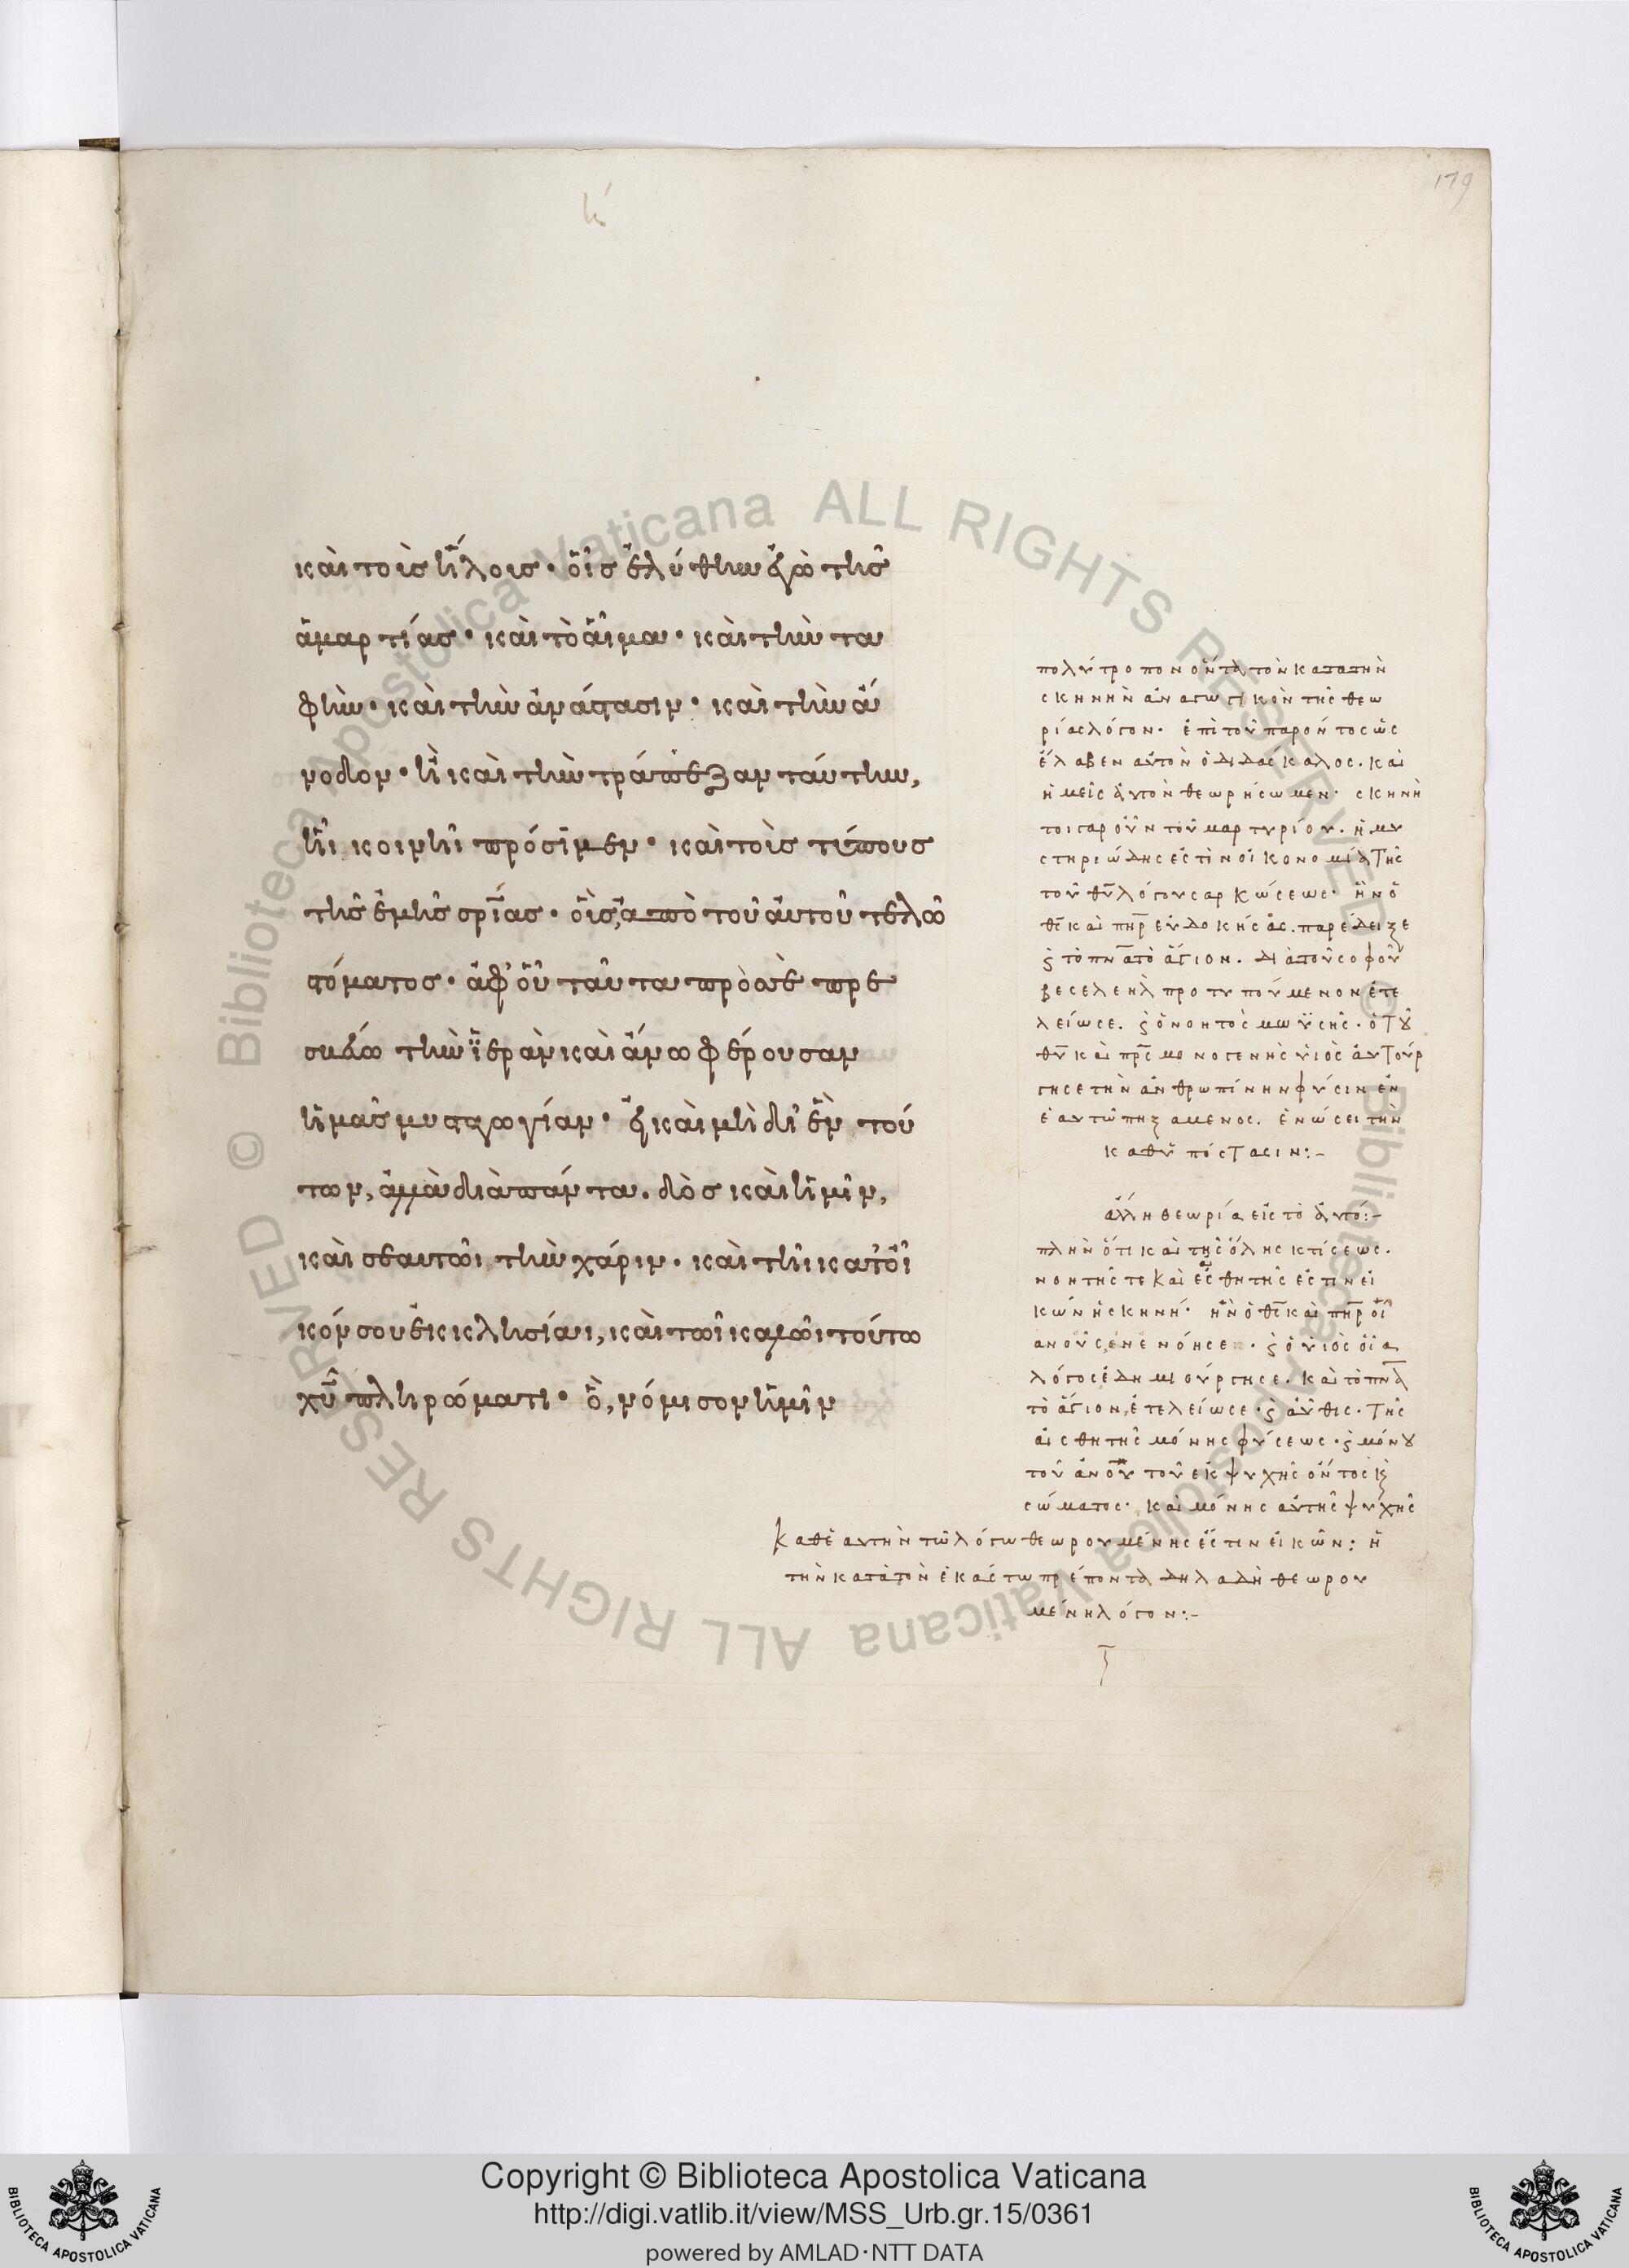 179
κ
καὶ τοῖς ἥλοις· οἷς ἐλύθην ἐγὼ τῆς
ἁμαρτίας· καὶ τὸ αἷμα· καὶ τὴν τα
φὴν· καὶ τὴν ἀνάστασιν· καὶ τὴν ἄ
νοδον· ἢ καὶ τὴν τράπεζαν ταύτην,
ἧι κοινῆι πρόσιμεν· καὶ τοὺς τύπους
τῆς ἐμῆς σρίας· οὓς ἀπὸ τοῦ αὐτοῦ τελῶ
στόματος· ἀφ' οὗ ταῦτα πρὸς σὲ πρε
σβεύω τὴν ἱερὰν καὶ ἄνω φέρουσαν
ἡμᾶς μυσταγωγίαν· εἰ καὶ μὴ δι' ἓν τού
των, ἀλλὰ διὰ πάντα. δὸς καὶ ἡμῖν,
καὶ σεαυτῶι τὴν χάριν· καὶ τῆι κατ' οἶ
κόν σου ἐκκλησίαι, καὶ τῶι καλῶι τούτω
χῦ πληρώματι· ὃ, νόμισον ἡμῖν
πολύτροπον ὄντα τὸν κατὰ τὴν
σκηνὴν ἀναγωγικὸν τῆς θεω
ρίας λόγον. ἐπὶ τοῦ παρόντος ὡς
ἔλαβεν αὐτὸν ὁ διδάσκαλος. καὶ
ἡμεῖς αὐτὸν θεωρήσωμεν· σκηνὴ
τοιγαροῦν τοῦ μαρτυρίου. ἡ μυ
στηριώδης ἐστὶν οἰκονομία τῆς
τοῦ θῦ λόγου σαρκώσεως· ἣν ὁ
θς καὶ πηρ εὐδοκήσας. παρέδειξε
ϛ τὸ πνα τὸ ἅγιον. διὰ τοῦ σοφοῦ
βεσελεηλ προτυπούμενον ἐτε
λείωσε. ϛ ὁ νοητὸς μωϋσῆς· ὁ τȣ
θῦ καὶ πρς μονογενὴς υἱὸς αὐτούρ
γησε τὴν ἀνθρωπίνην φύσιν ἐν
ἑαυτῶ πηξάμενος. ἑνώσει τῆ
καθ' ὑπόστασιν:-
ἄλλη θεωρία εἰς τὸ αὐτό:-
πλὴν ὅτι καὶ τῆς ὅλης κτίσεως.
νοητῆς τε καὶ αἰσθητῆς ἐστιν εἰ
κὼν ἡ σκηνή· ἣν ὁ θς καὶ πηρ οἷ
α νοῦς ἐνενόησε· ϛ ὁ υἱὸς οἷα
λόγος ἐδημιούργησε. καὶ τὸ πνα
τὸ ἅγιον, ἐτελείωσε· ϛ αὖθις. τῆς
αἰσθητῆς μόνης φύσεως· ϛ μόνȣ
τοῦ ἀνοῦ τοῦ ἐκ ψυχῆς ὄντος κ
σώματος· καὶ μόνης αὐτῆς ψυχῆς
καθ' ἑαυτὴν τῶ λόγω θεωρουμένης ἐστὶν εἰκών: ἢ
τὴν κατὰ τὸν ἑκάστω πρέποντα δηλαδὴ θεωρου
μένη λόγον:-
Copyright © Biblioteca Apostolica Vaticana
http://digi.vatlib.it/view/MSS_Urb.gr.15/0361
powered by AMLAD·NTT DATA
BIBLIOTECA APOSTOLICA VATICANA
BIBLIOTECA APOSTOLICA VATICANA
© Biblioteca Apostolica Vaticana ALL RIGHTS RESERVED
© Biblioteca Apostolica Vaticana ALL RIGHTS RESERVED